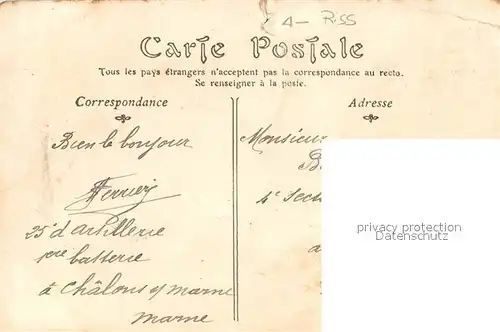 A - RSS
Carte Postale
Tous les pays étrangers n'acceptent pas la correspondance au recto.
Se renseigner à la poste.
Correspondance
Adresse
Bien le bonjour
Ferrier
25e d'artillerie
1ère batterie
à Châlons s/ marne
marne
Monsieur
B
4e Sect
a
privacy protection
Datenschutz